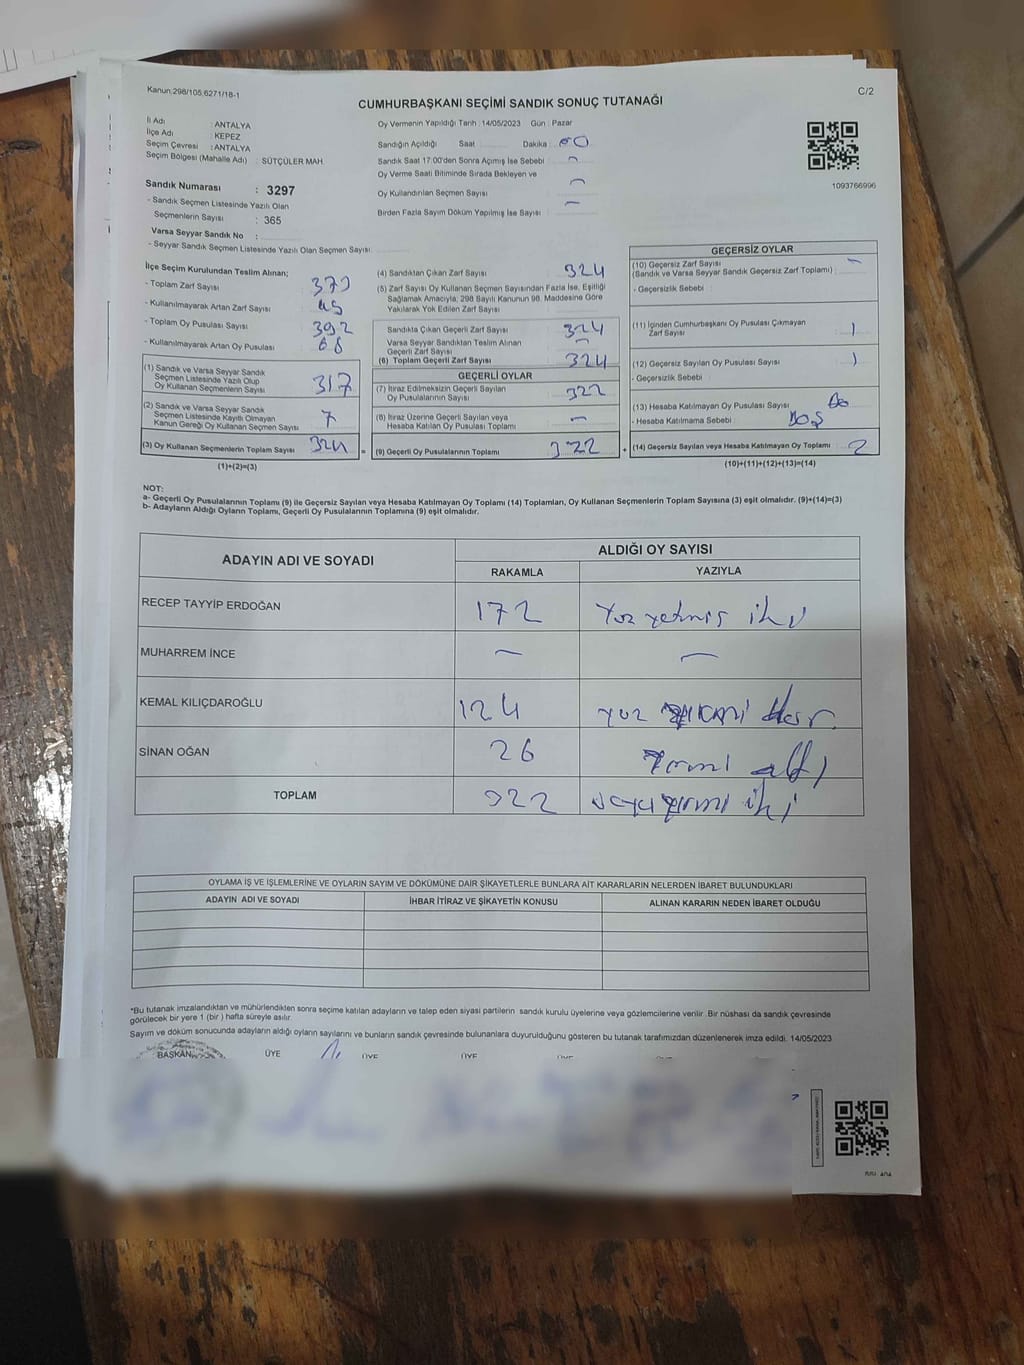 Kanun:298/105,6271/18-1
C/2
CUMHURBAŞKANI SEÇİMİ SANDIK SONUÇ TUTANAĞI
İl Adı : ANTALYA
İlçe Adı : KEPEZ
Seçim Çevresi : ANTALYA
Seçim Bölgesi (Mahalle Adı) : SÜTÇÜLER MAH.
Sandık Numarası : 3297
- Sandık Seçmen Listesinde Yazılı Olan
Seçmenlerin Sayısı : 365
Varsa Seyyar Sandık No :
- Seyyar Sandık Seçmen Listesinde Yazılı Olan Seçmen Sayısı:
Oy Vermenin Yapıldığı Tarih : 14/05/2023 Gün : Pazar
Sandığın Açıldığı Saat Dakika
Sandık Saat 17:00'den Sonra Açılmış İse Sebebi : -
Oy Verme Saati Bitiminde Sırada Bekleyen ve
Oy Kullandırılan Seçmen Sayısı -
Birden Fazla Sayım Döküm Yapılmış İse Sayısı : -
1093766996
İlçe Seçim Kurulundan Teslim Alınan;
- Toplam Zarf Sayısı
- Kullanılmayarak Artan Zarf Sayısı
- Toplam Oy Pusulası Sayısı : 392
- Kullanılmayarak Artan Oy Pusulası : 68
(1) Sandık ve Varsa Seyyar Sandık
Seçmen Listesinde Yazılı Olup
Oy Kullanan Seçmenlerin Sayısı : 317
(2) Sandık ve Varsa Seyyar Sandık
Seçmen Listesinde Kayıtlı Olmayan
Kanun Gereği Oy Kullanan Seçmen Sayısı : 7
(3) Oy Kullanan Seçmenlerin Toplam Sayısı : 324
(1)+(2)=(3)
(4) Sandıktan Çıkan Zarf Sayısı : 324
(5) Zarf Sayısı Oy Kullanan Seçmen Sayısından Fazla İse, Eşitliği
Sağlamak Amacıyla, 298 Sayılı Kanunun 98. Maddesine Göre
Yakılarak Yok Edilen Zarf Sayısı :
Sandıkta Çıkan Geçerli Zarf Sayısı : 324
Varsa Seyyar Sandıktan Teslim Alınan
Geçerli Zarf Sayısı : -
(6) Toplam Geçerli Zarf Sayısı : 324
GEÇERLİ OYLAR
(7) İtiraz Edilmeksizin Geçerli Sayılan
Oy Pusulalarının Sayısı : 322
(8) İtiraz Üzerine Geçerli Sayılan veya
Hesaba Katılan Oy Pusulası Toplamı : -
(9) Geçerli Oy Pusulalarının Toplamı : 322
GEÇERSİZ OYLAR
(10) Geçersiz Zarf Sayısı : -
(Sandık ve Varsa Seyyar Sandık Geçersiz Zarf Toplamı)
- Geçersizlik Sebebi :
(11) İçinden Cumhurbaşkanı Oy Pusulası Çıkmayan
Zarf Sayısı : 1
(12) Geçersiz Sayılan Oy Pusulası Sayısı : 1
- Geçersizlik Sebebi :
(13) Hesaba Katılmayan Oy Pusulası Sayısı :
- Hesaba Katılmama Sebebi : BOŞ
(14) Geçersiz Sayılan veya Hesaba Katılmayan Oy Toplamı : 2
(10)+(11)+(12)+(13)=(14)
NOT:
a- Geçerli Oy Pusulalarının Toplamı (9) ile Geçersiz Sayılan veya Hesaba Katılmayan Oy Toplamı (14) Toplamları, Oy Kullanan Seçmenlerin Toplam Sayısına (3) eşit olmalıdır. (9)+(14)=(3)
b- Adayların Aldığı Oyların Toplamı, Geçerli Oy Pusulalarının Toplamına (9) eşit olmalıdır.
ADAYIN ADI VE SOYADI ALDIĞI OY SAYISI
RAKAMLA YAZIYLA
RECEP TAYYİP ERDOĞAN 172 Yüz yetmiş iki
MUHARREM İNCE - -
KEMAL KILIÇDAROĞLU 124 yüz
SİNAN OĞAN 26 Yirmi altı
TOPLAM 322 yirmi iki
OYLAMA İŞ VE İŞLEMLERİNE VE OYLARIN SAYIM VE DÖKÜMÜNE DAİR ŞİKAYETLERLE BUNLARA AİT KARARLARIN NELERDEN İBARET BULUNDUKLARI
ADAYIN ADI VE SOYADI İHBAR İTİRAZ VE ŞİKAYETİN KONUSU ALINAN KARARIN NEDEN İBARET OLDUĞU
*Bu tutanak imzalandıktan ve mühürlendikten sonra seçime katılan adayların ve talep eden siyasi partilerin sandık kurulu üyelerine veya gözlemcilerine verilir. Bir nüshası da sandık çevresinde
görülecek bir yere 1 (bir ) hafta süreyle asılır.
Sayım ve döküm sonucunda adayların aldığı oyların sayılarını ve bunların sandık çevresinde bulunanlara duyurulduğunu gösteren bu tutanak tarafımızdan düzenlenerek imza edildi. 14/05/2023
BAŞKAN ÜYE ÜYE ÜYE